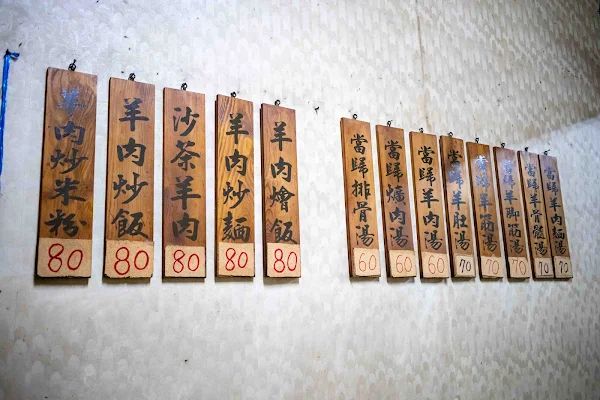 羊肉炒米粉
80
羊肉炒飯
80
沙茶羊肉
80
羊肉炒麵
80
羊肉燴飯
80
當歸排骨湯
60
當歸爌肉湯
60
當歸羊肉湯
60
當歸羊肚湯
70
當歸羊筋湯
70
當歸羊脚筋湯
70
當歸羊骨髓湯
70
當歸羊肉麵湯
70